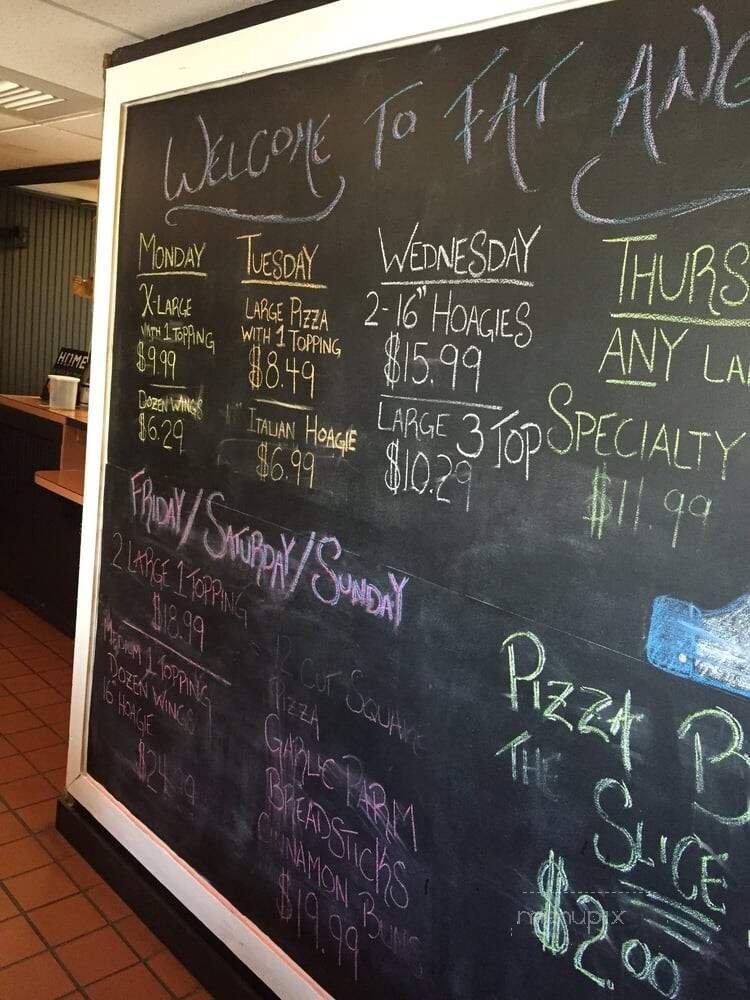 WELCOME TO FAT ANG
MONDAY
X-LARGE
WITH 1 TOPPING
$9.99
DOZEN WINGS
$6.29
TUESDAY
LARGE PIZZA
WITH 1 TOPPING
$8.49
ITALIAN HOAGIE
$6.99
WEDNESDAY
2-16" HOAGIES
$15.99
LARGE 3 TOP
$10.29
THURS
ANY LA
SPECIALTY
$11.99
FRIDAY/SATURDAY/SUNDAY
2 LARGE 1 TOPPING
$18.99
MEDIUM 1 TOPPING
DOZEN WINGS
16 HOAGIE
$24.99
12 CUT SQUARE
PIZZA
GARLIC PARM
BREADSTICKS
CINNAMON BUNS
$19.99
PIZZA B
THE
SLICE
$2.00
HOME
menupix